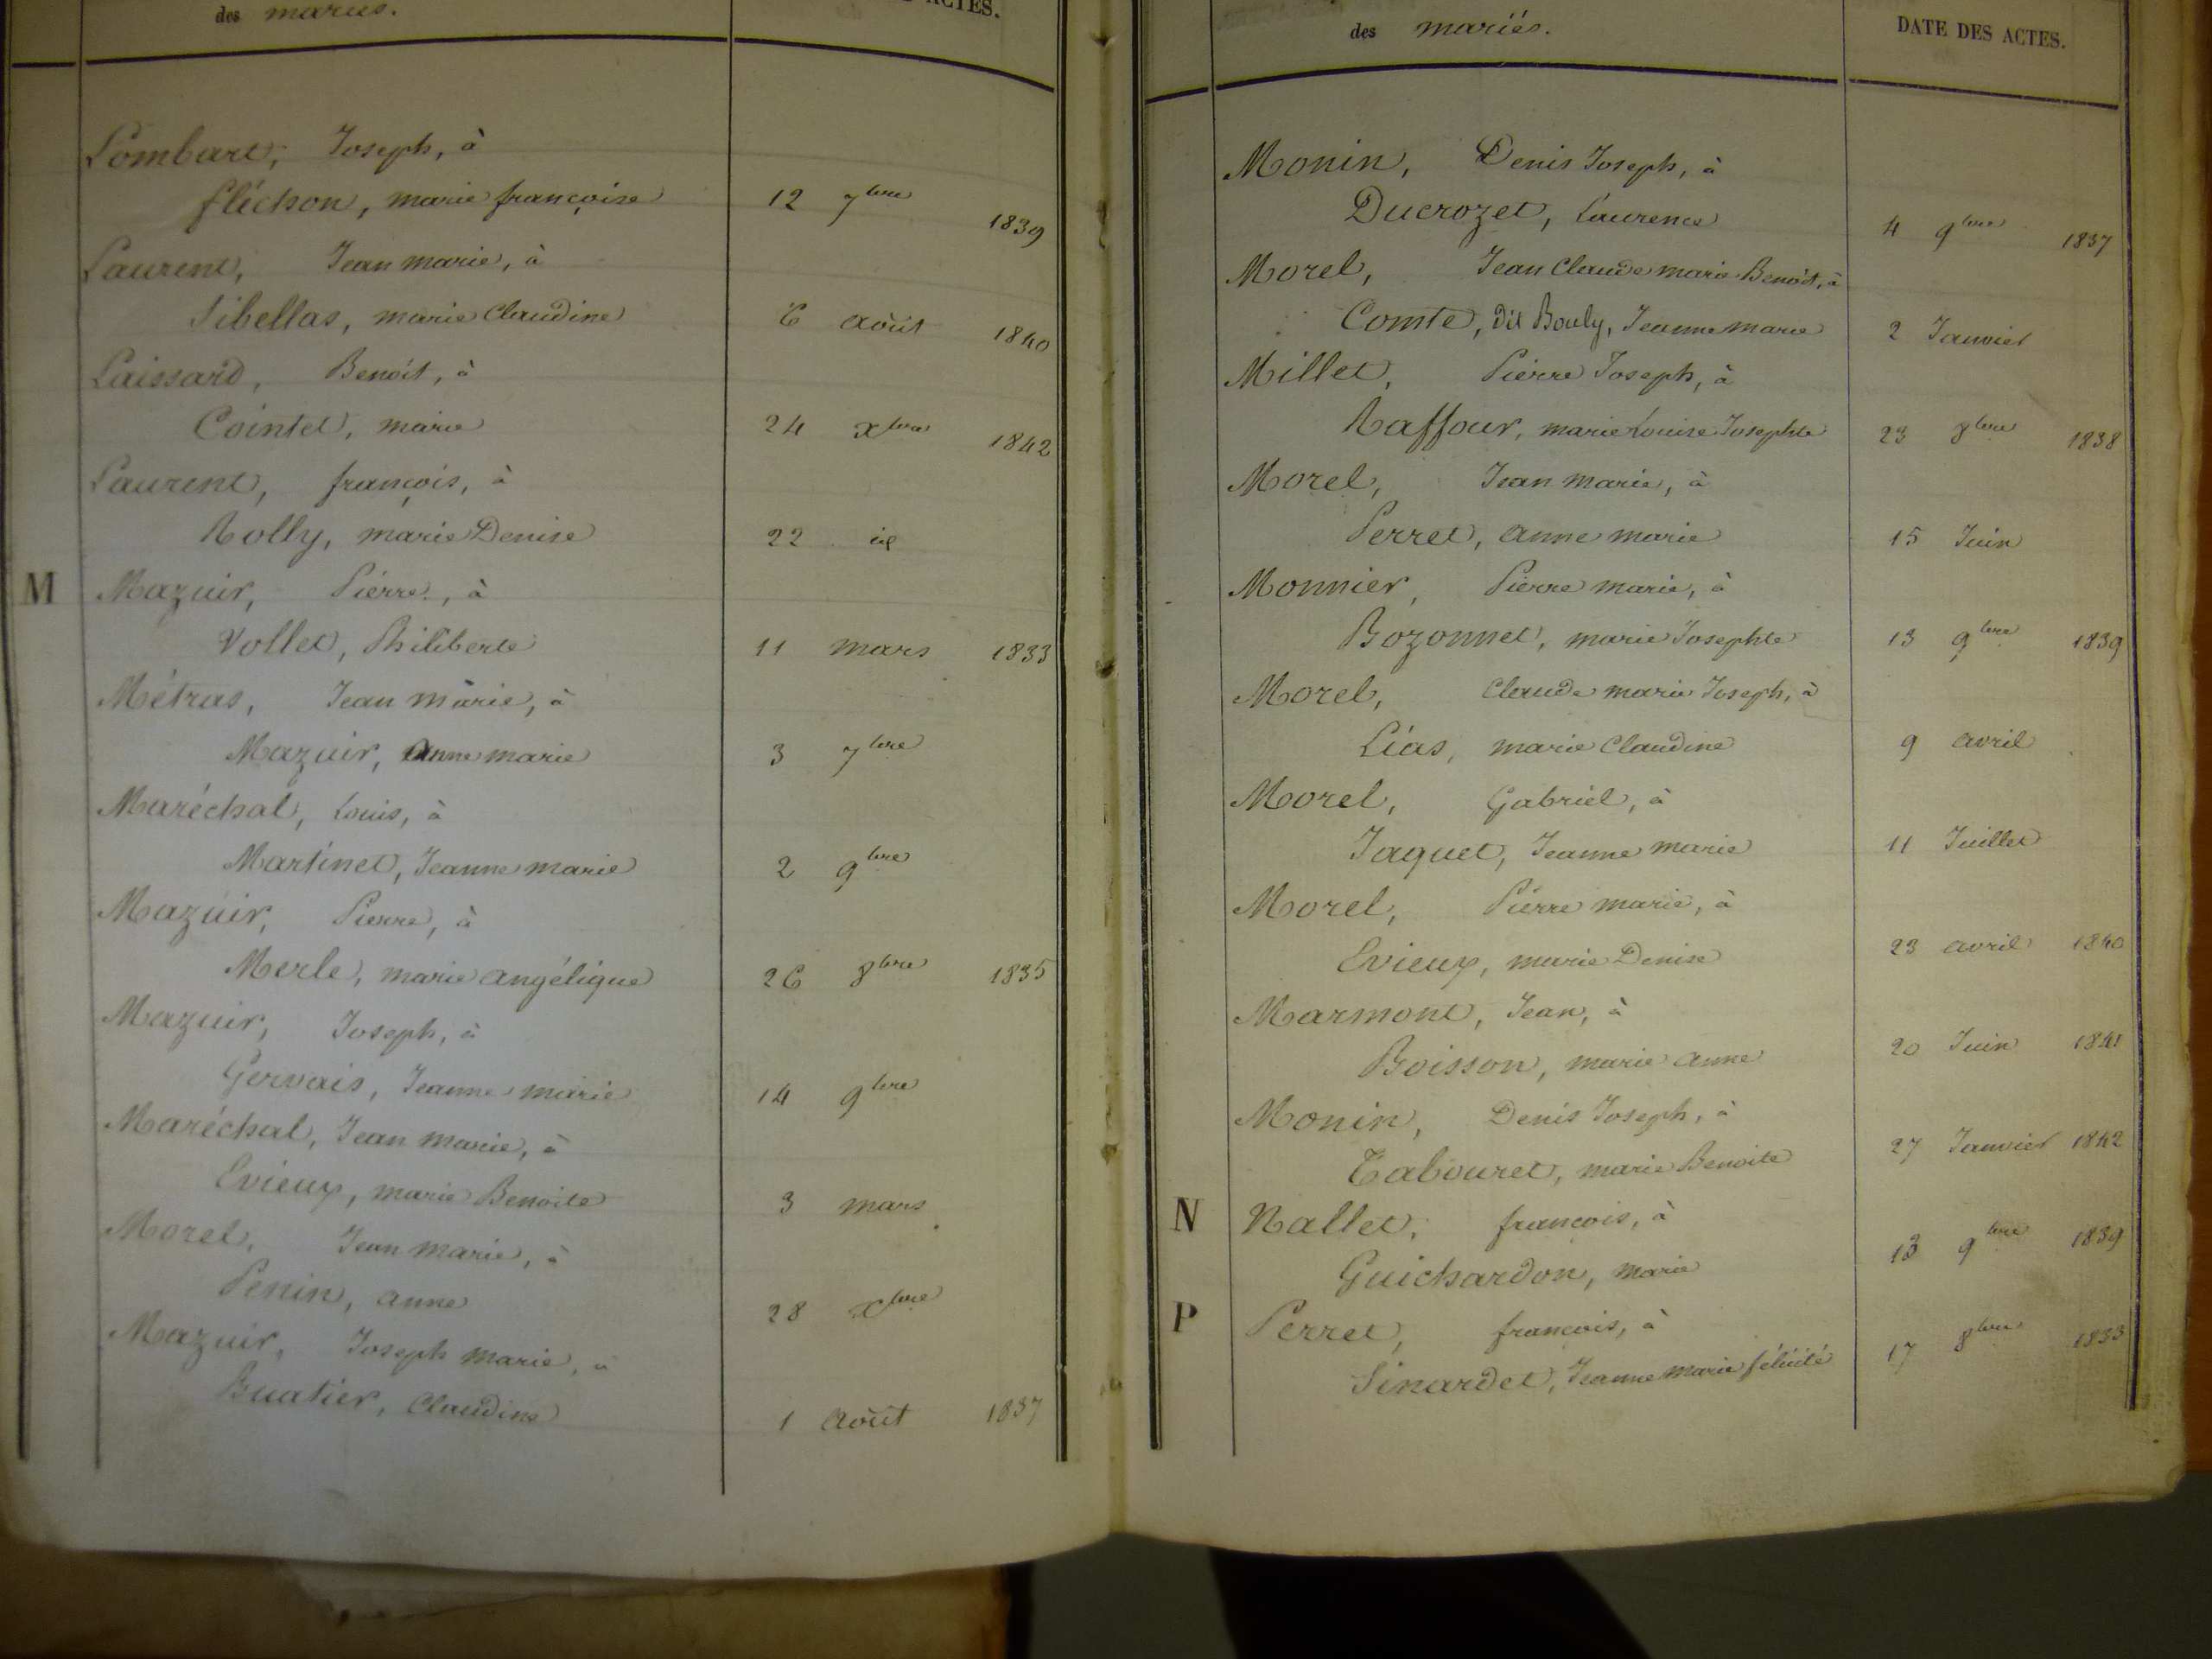 des mariés.
ACTES.
Lombart, Joseph, à
fléchon, marie françoise 12 7bre 1839
Laurent, Jean marie, à
Sibellas, marie Claudine 6 août 1840
Laissard, Benoit, à
Cointet, marie 24 xbre 1842
Laurent, françois, à
Rolly, marie Denise 22 id
M Mazuir, Pierre, à
Vollet, Philiberte 11 mars 1833
Métras, Jean marie, à
Mazuir, anne marie 3 7bre
Maréchal, Louis, à
Martinet, Jeanne marie 2 9bre
Mazuir, Pierre, à
Merle, marie angélique 26 8bre 1835
Mazuir, Joseph, à
Gervais, Jeanne marie 14 9bre
Maréchal, Jean marie, à
Evieux, marie Benoite 3 mars
Morel, Jean marie, à
Penin, anne 28 xbre
Mazuir, Joseph marie, à
Buatier, Claudine 1 août 1837
des mariés.
DATE DES ACTES.
Monin, Denis Joseph, à
Ducrozet, Laurence 4 9bre 1837
Morel, Jean Claude marie Benoit, à
Comte, dit Bouly, Jeanne marie 2 Janvier
Millet, Pierre Joseph, à
Raffour, marie Louise Josephte 23 8bre 1838
Morel, Jean marie, à
Perret, anne marie 15 Juin
Monnier, Pierre marie, à
Bozonnet, marie Josephte 13 9bre 1839
Morel, Claude marie Joseph, à
Liàs, marie Claudine 9 avril
Morel, Gabriel, à
Jaquet, Jeanne marie 11 Juillet
Morel, Pierre marie, à
Evieux, marie Denise 23 avril 1840
Marmont, Jean, à
Boisson, marie anne 20 Juin 1841
Monin, Denis Joseph, à
Tabouret, marie Benoite 27 Janvier 1842
N Nallet, françois, à
Guichardon, marie 13 9bre 1839
P Perret, françois, à
Sinardet, Jeanne marie félicité 17 8bre 1833